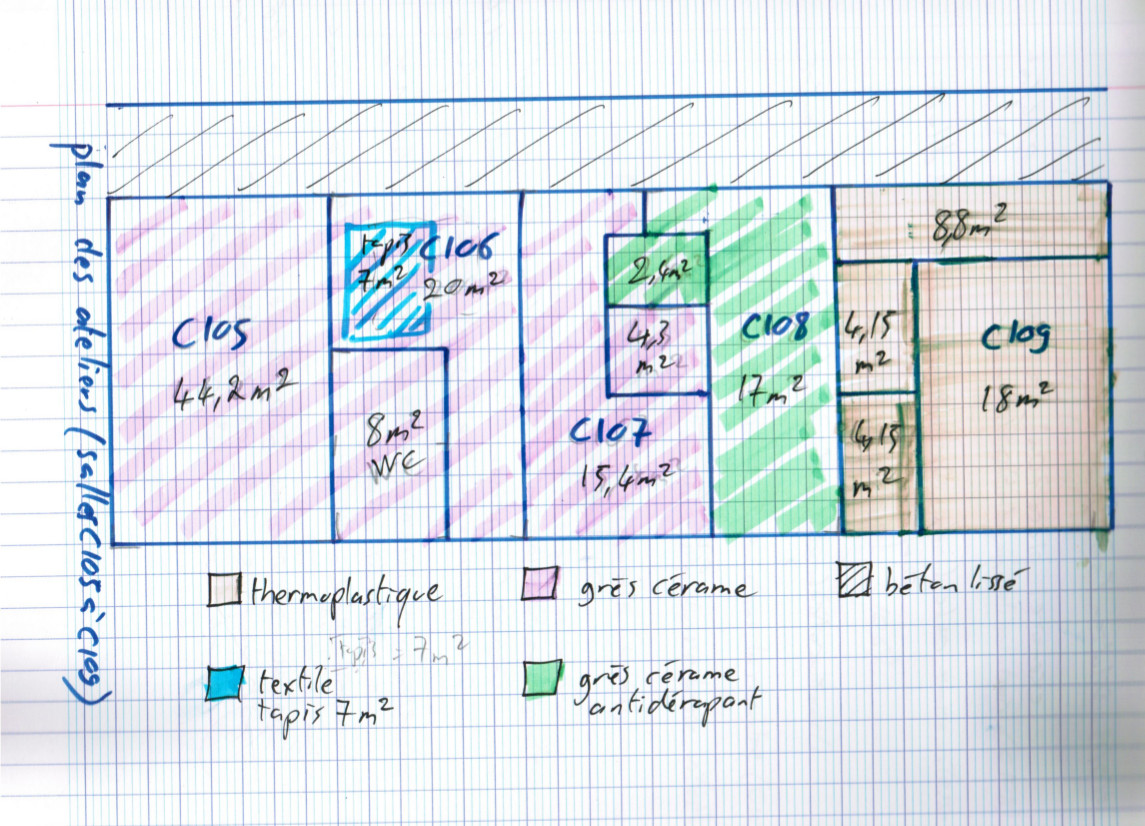 plan des ateliers (salles C105 à C109)
8,8m²
tapis
7m²
C106
20m²
2,4m²
C105
44,2m²
4,3
m²
C108
17m²
4,15
m²
C109
18m²
8m²
WC
C107
15,4m²
4,15
m²
thermoplastique
grès cérame
béton lissé
Tapis = 7m²
textile
tapis 7m²
grès cérame
antidérapant